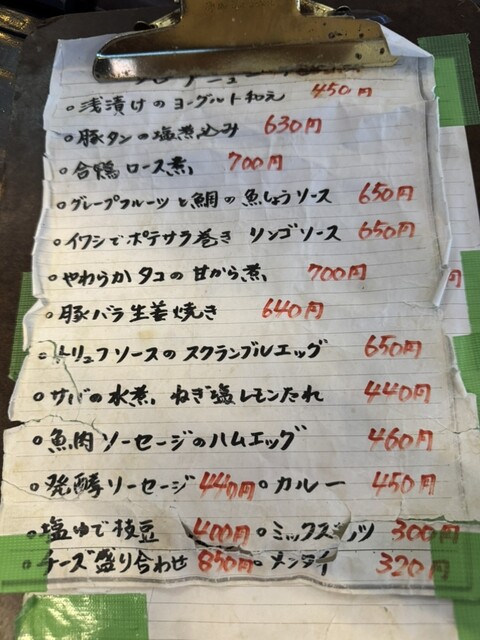 メニュー
○浅漬けのヨーグルト和え 450円
○豚タンの塩煮込み 630円
○合鴨ロース煮 700円
○グレープフルーツと鯛の魚しょうソース 650円
○イワシでポテサラ巻き リンゴソース 650円
○やわらかタコの甘から煮 700円
○豚バラ生姜焼き 640円
○トリュフソースのスクランブルエッグ 650円
○サバの水煮、ねぎ塩レモンたれ 440円
○魚肉ソーセージのハムエッグ 460円
○発酵ソーセージ 440円 ○カルー 450円
○塩ゆで枝豆 400円 ○ミックスナッツ 300円
○チーズ盛り合わせ 850円 ○メンタイ 320円